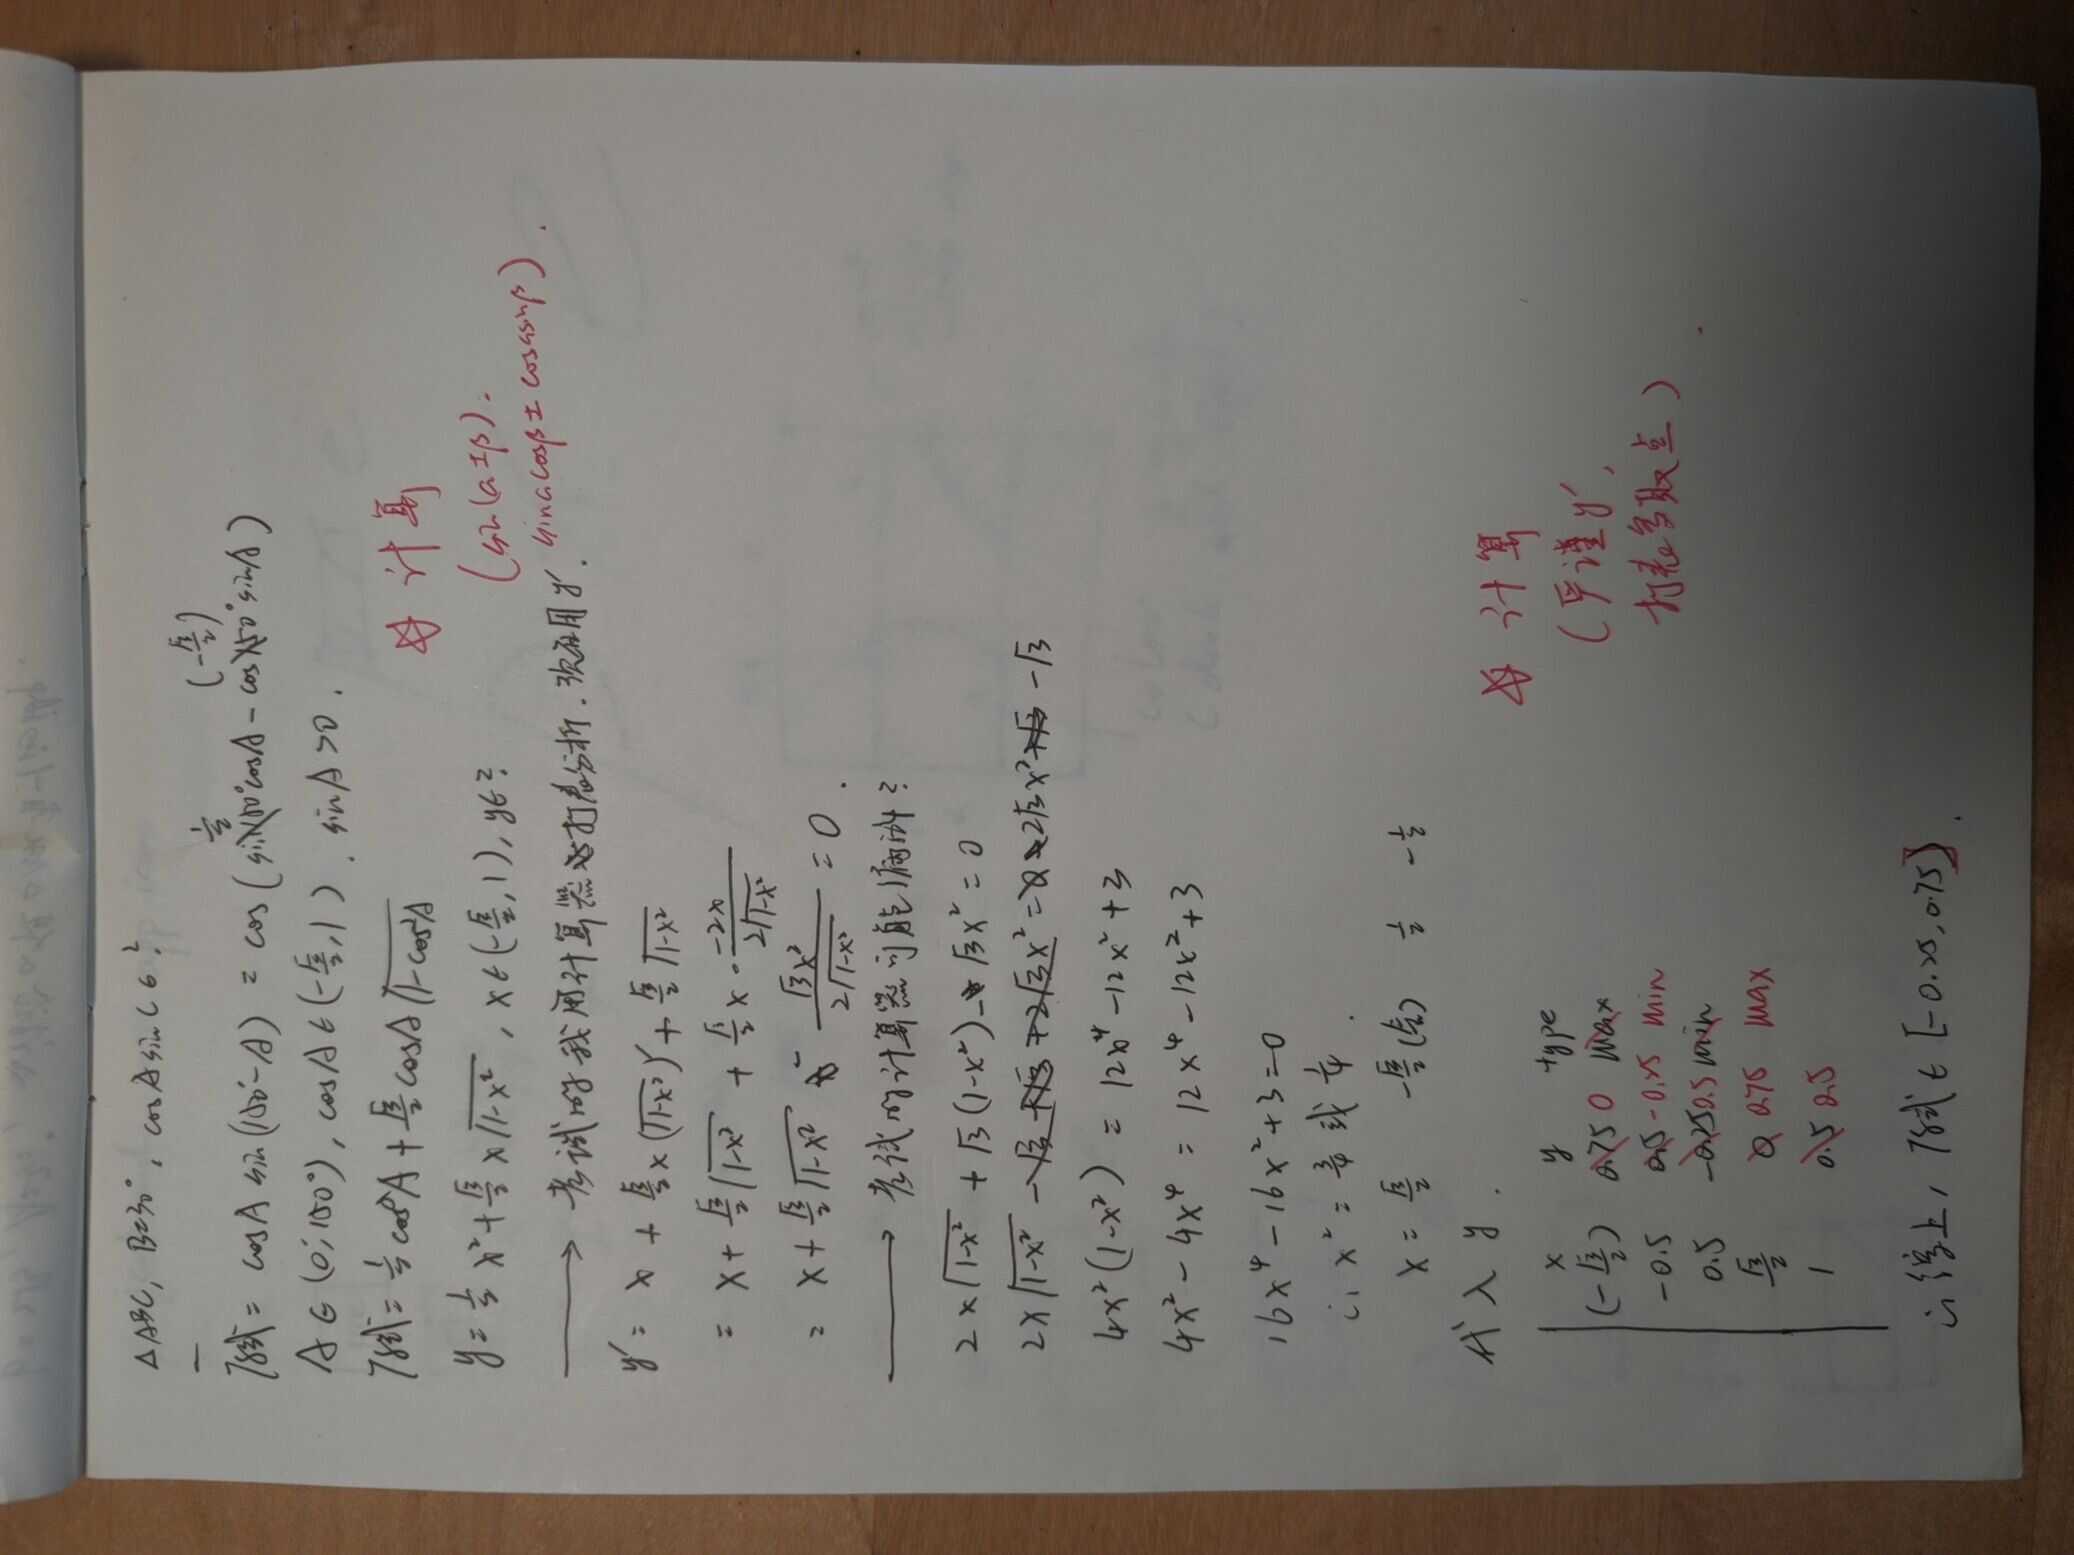 △ABC, B=30°, cosAsinC∈?
—
原式 = cosA sin(150°-A) = cos(sin150°cosA - cos150°sinA)
1/2 (-√3/2)
A∈(0°,150°), cosA∈(-√3/2,1). sinA>0.
原式 = 1/2 cos²A + √3/2 cosA √(1-cos²A)
☆ 计算
y = 1/2 x² + √3/2 x√(1-x²), x∈(-√3/2,1), y∈?
(sin(α±β).
sinαcosβ±cosαsinβ).
→ 考试时我用计算器打表分析. 现在用y'.
y' = x + √3/2 x(√(1-x²))' + √3/2 √(1-x²)
= x + √3/2 √(1-x²) + √3/2 x · -2x/(2√(1-x²))
= x + √3/2 √(1-x²) - √3x²/(2√(1-x²)) = 0.
→ 考试时计算器可能
2x√(1-x²) + √3(1-x²) - √3x² = 0
2x√(1-x²) = 2√3x² - √3
4x²(1-x²) = 12x⁴-12x²+3
4x² - 4x⁴ = 12x⁴-12x²+3
16x⁴-16x²+3=0
∴ x² = 3/4 或 1/4.
x = √3/2 -√3/2(舍) 1/2 -1/2
代入 y.
☆ 计算
(严谨y',
打表多取点).
x y type
(-√3/2) 0.75 0 max
-0.5 0.5 -0.25 min
0.5 -0.25 0.5 min
√3/2 0 0.75 max
1 0.5 0.5
∴综上, 原式∈[-0.25,0.75].